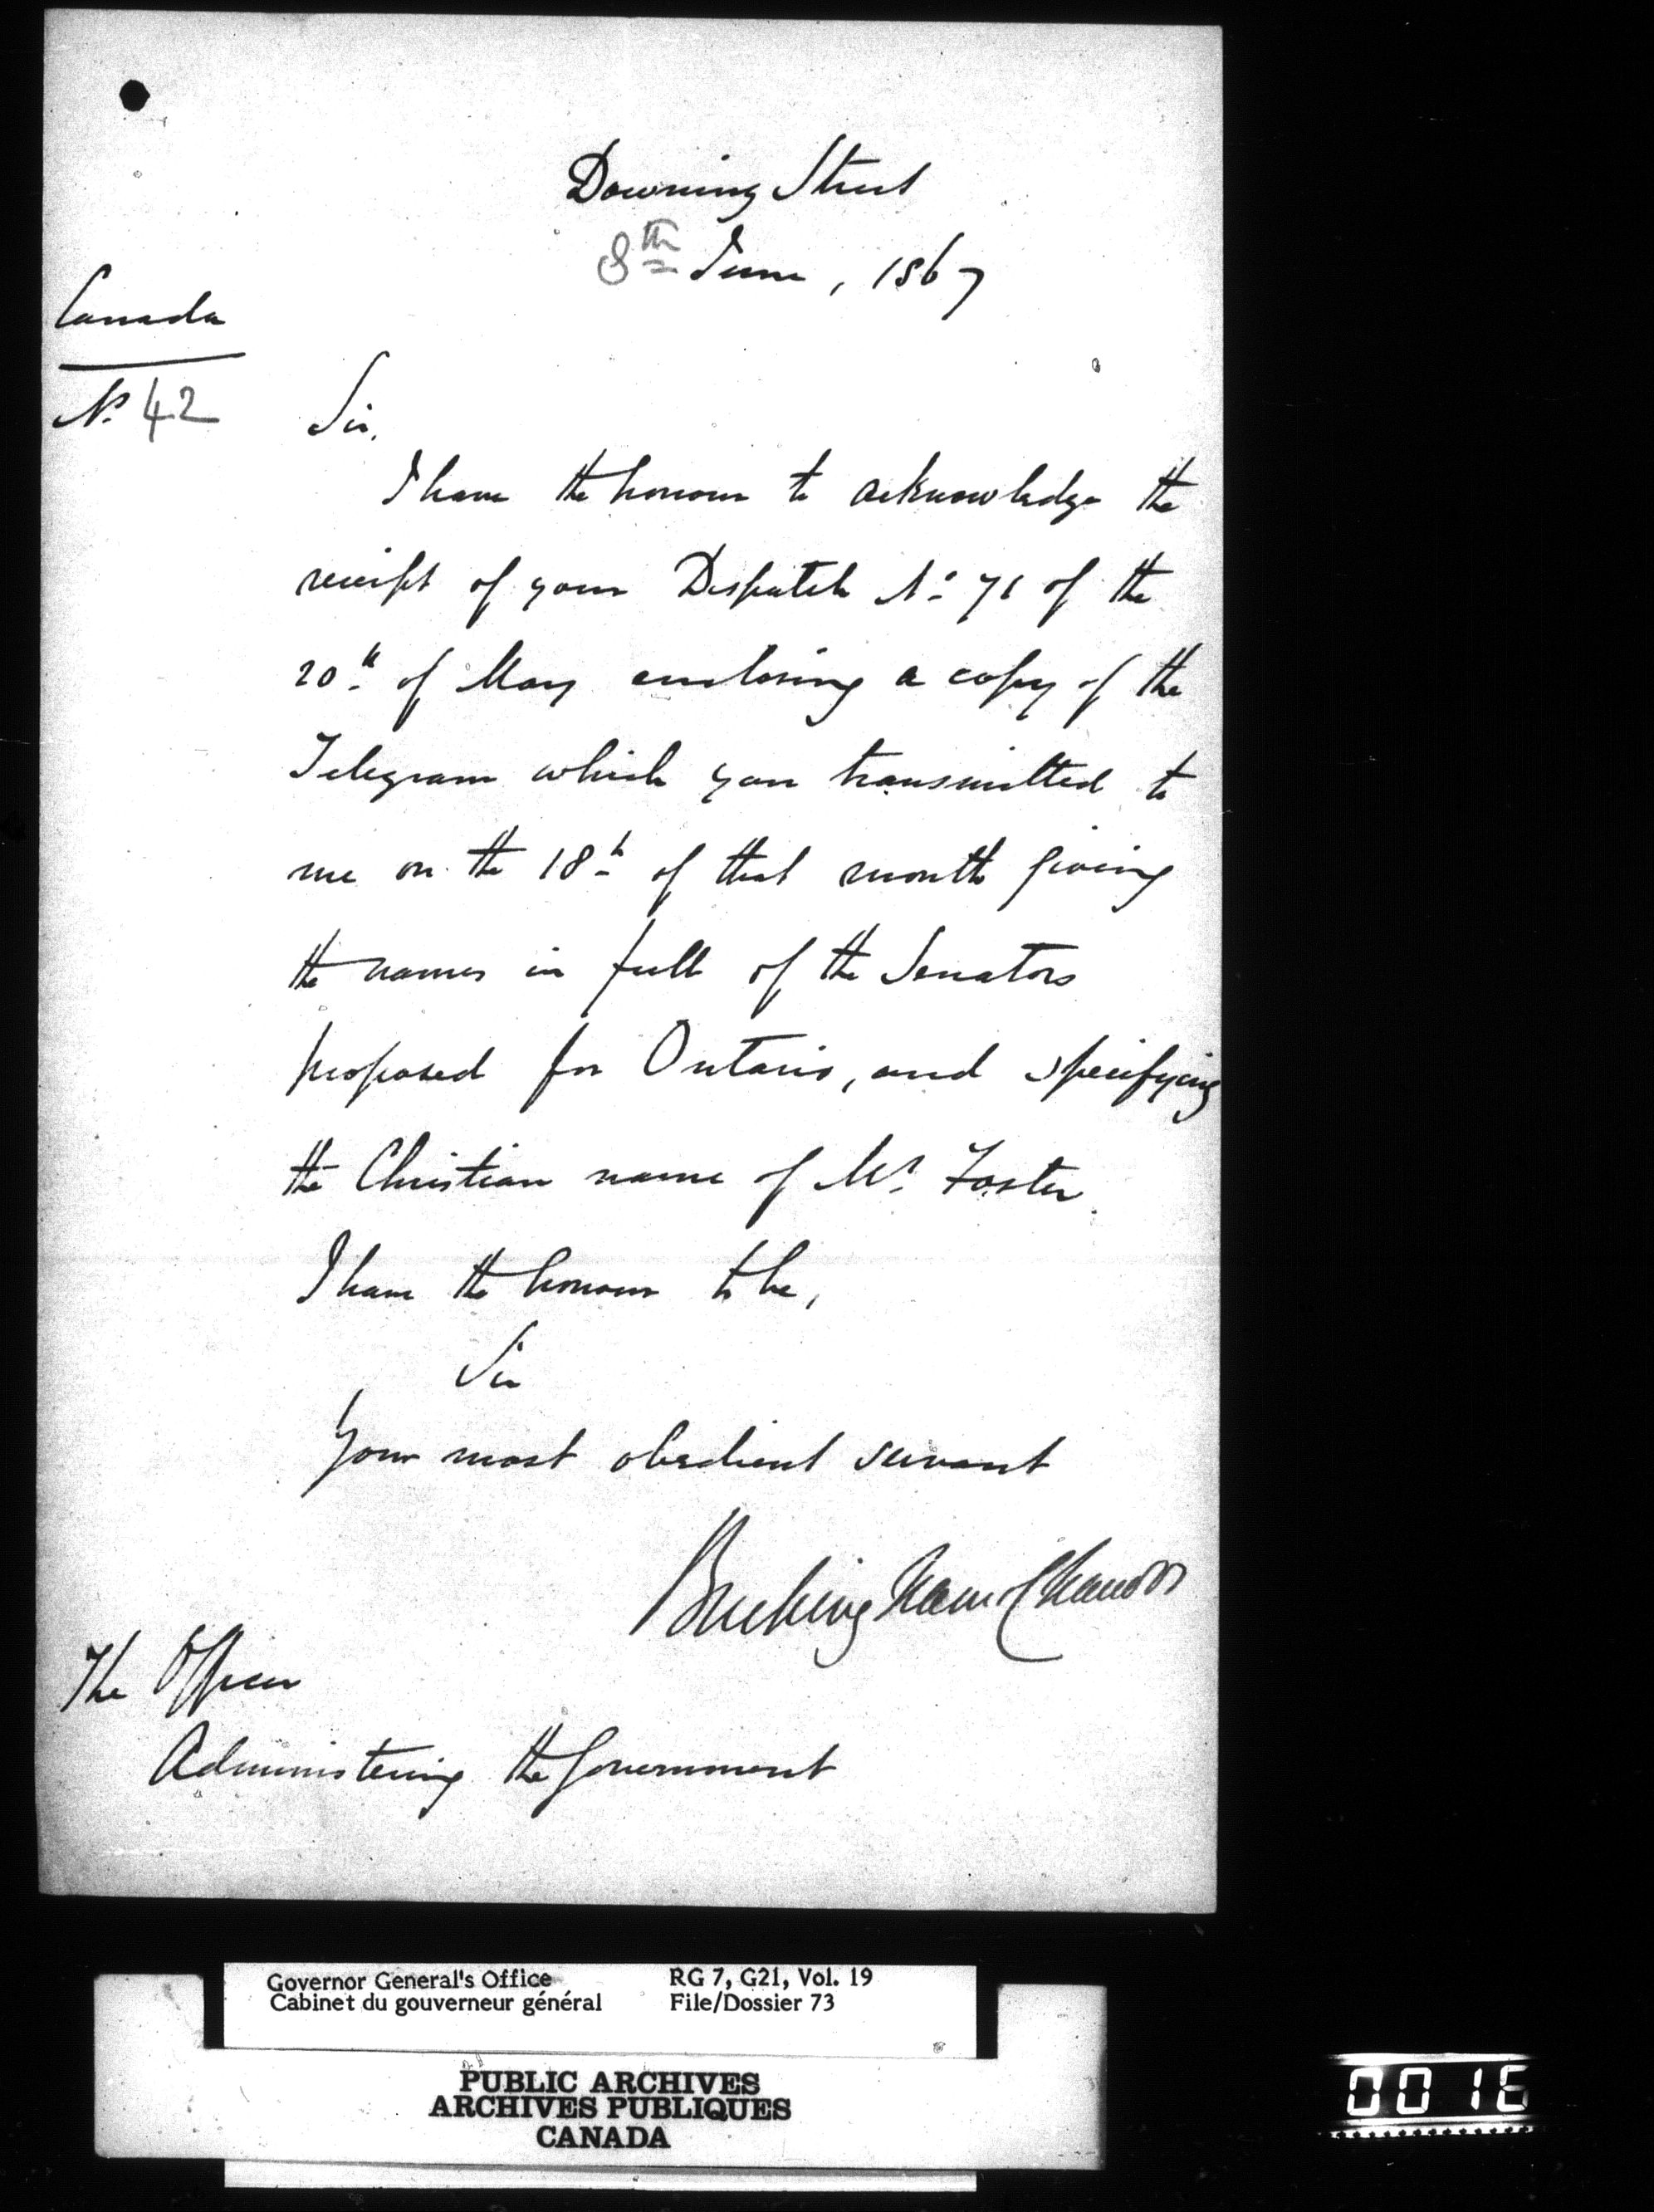 Downing Street
8th June, 1867
Canada
No. 42
Sir,
I have the honour to acknowledge the
receipt of your Despatch No. 71 of the
20th of May enclosing a copy of the
Telegram which you transmitted to
me on the 18th of that month giving
the names in full of the Senators
proposed for Ontario, and specifying
the Christian name of Mr. Foster.
I have the honour to be,
Sir
Your most obedient servant
Buckingham & Chandos
The Officer
Administering the Government
Governor General's Office RG 7, G21, Vol. 19
Cabinet du gouverneur général File/Dossier 73
PUBLIC ARCHIVES
ARCHIVES PUBLIQUES
CANADA
0016